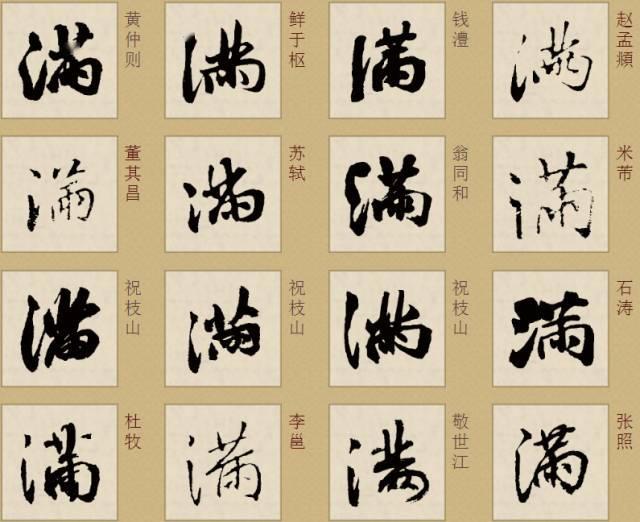 满 黄仲则 满 鲜于枢 满 钱澧 满 赵孟頫
满 董其昌 满 苏轼 满 翁同和 满 米芾
满 祝枝山 满 祝枝山 满 祝枝山 满 石涛
满 杜牧 满 李邕 满 敬世江 满 张照